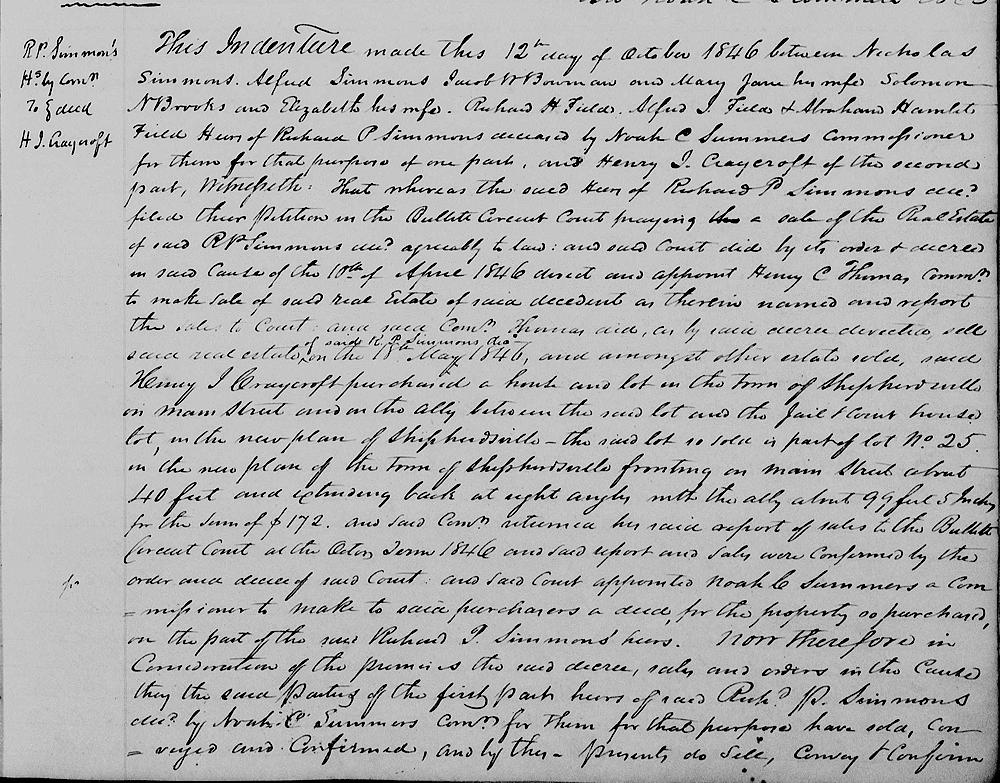 R.P. Simmon's
Hs by Comr
To } deed
H J. Craycroft
This Indenture made this 12th day of October 1846 between Nicholas
Simmons. Alfred Simmons Jacob W Bowman and Mary Jane his wife Solomon
N Brooks and Elizabeth his wife. Richard H Field. Alfred I. Field & Abraham Hamlet
Field Heirs of Richard P Simmons deceased by Noah C Summers Commissioner
for them for that purpose of one part, and Henry J. Craycroft of the second
part, Witnesseth: That whereas the said Heirs of Richard P Simmons decd
filed their Petition in the Bullitt Circuit Court praying a sale of the Real Estate
of said R P Simmons decd agreeably to law: and said Court did by its order & decree
in said Cause of the 10th of April 1846 direct and appoint Henry C Thomas Commr
to make Sale of said real Estate of said decedent as therein named and report
the sales to Court: and said Comr Thomas did, as by said decree directed, sell
of said R. P. Simmons decd
said real estate, on the 18th May 1846, and amongst other estate sold, said
Henry J Craycroft purchased a house and lot in the Town of Shepherdsville
on main Street and on the ally between the said lot and the Jail & Court house
lot, in the new plan of Shepherdsville - the said lot so sold is part of lot No 25.
in the new plan of the Town of Shepherdsville fronting on main Street about
40 feet and extending back at right angles with the ally about 99 feet 5 Inches
for the Sum of $172. and said Comr returned his said report of sales to the Bullitt
Circuit Court at the Octor Term 1846 and said report and sales were Confirmed by the
order and decree of said Court: and said Court appointed Noah C Summers a Com
=missioner to make to said purchasers a deed, for the property so purchased,
on the part of the said Richard P. Simmons' heirs. Now Therefore in
Consideration of the premises the said decree, sales and orders in the Cause
they the said Parties of the first part heirs of said Richd P. Simmons
decd by Noah C Summers Comr for them for that purpose have sold, Con
=veyed and Confirmed, and by these presents do Sell, Convey & Confirm